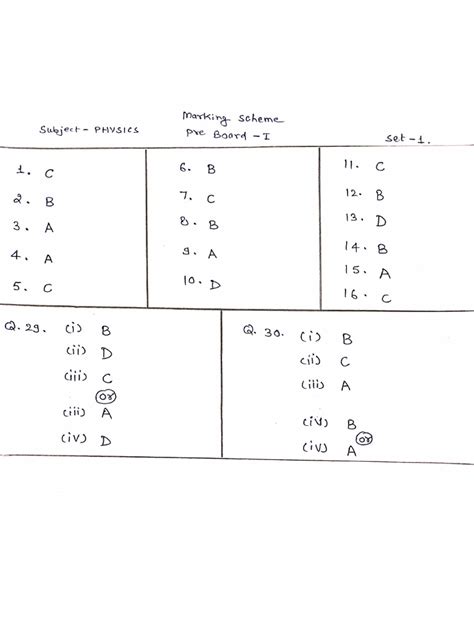 Marking Scheme
Subject - PHYSICS Pre Board - I Set - 1.
1. C
2. B
3. A
4. A
5. C
6. B
7. C
8. B
9. A
10. D
11. C
12. B
13. D
14. B
15. A
16. C
Q. 29. (i) B
(ii) D
(iii) C
or
(iii) A
(iv) D
Q. 30. (i) B
(ii) C
(iii) A
(iv) B
or
(iv) A